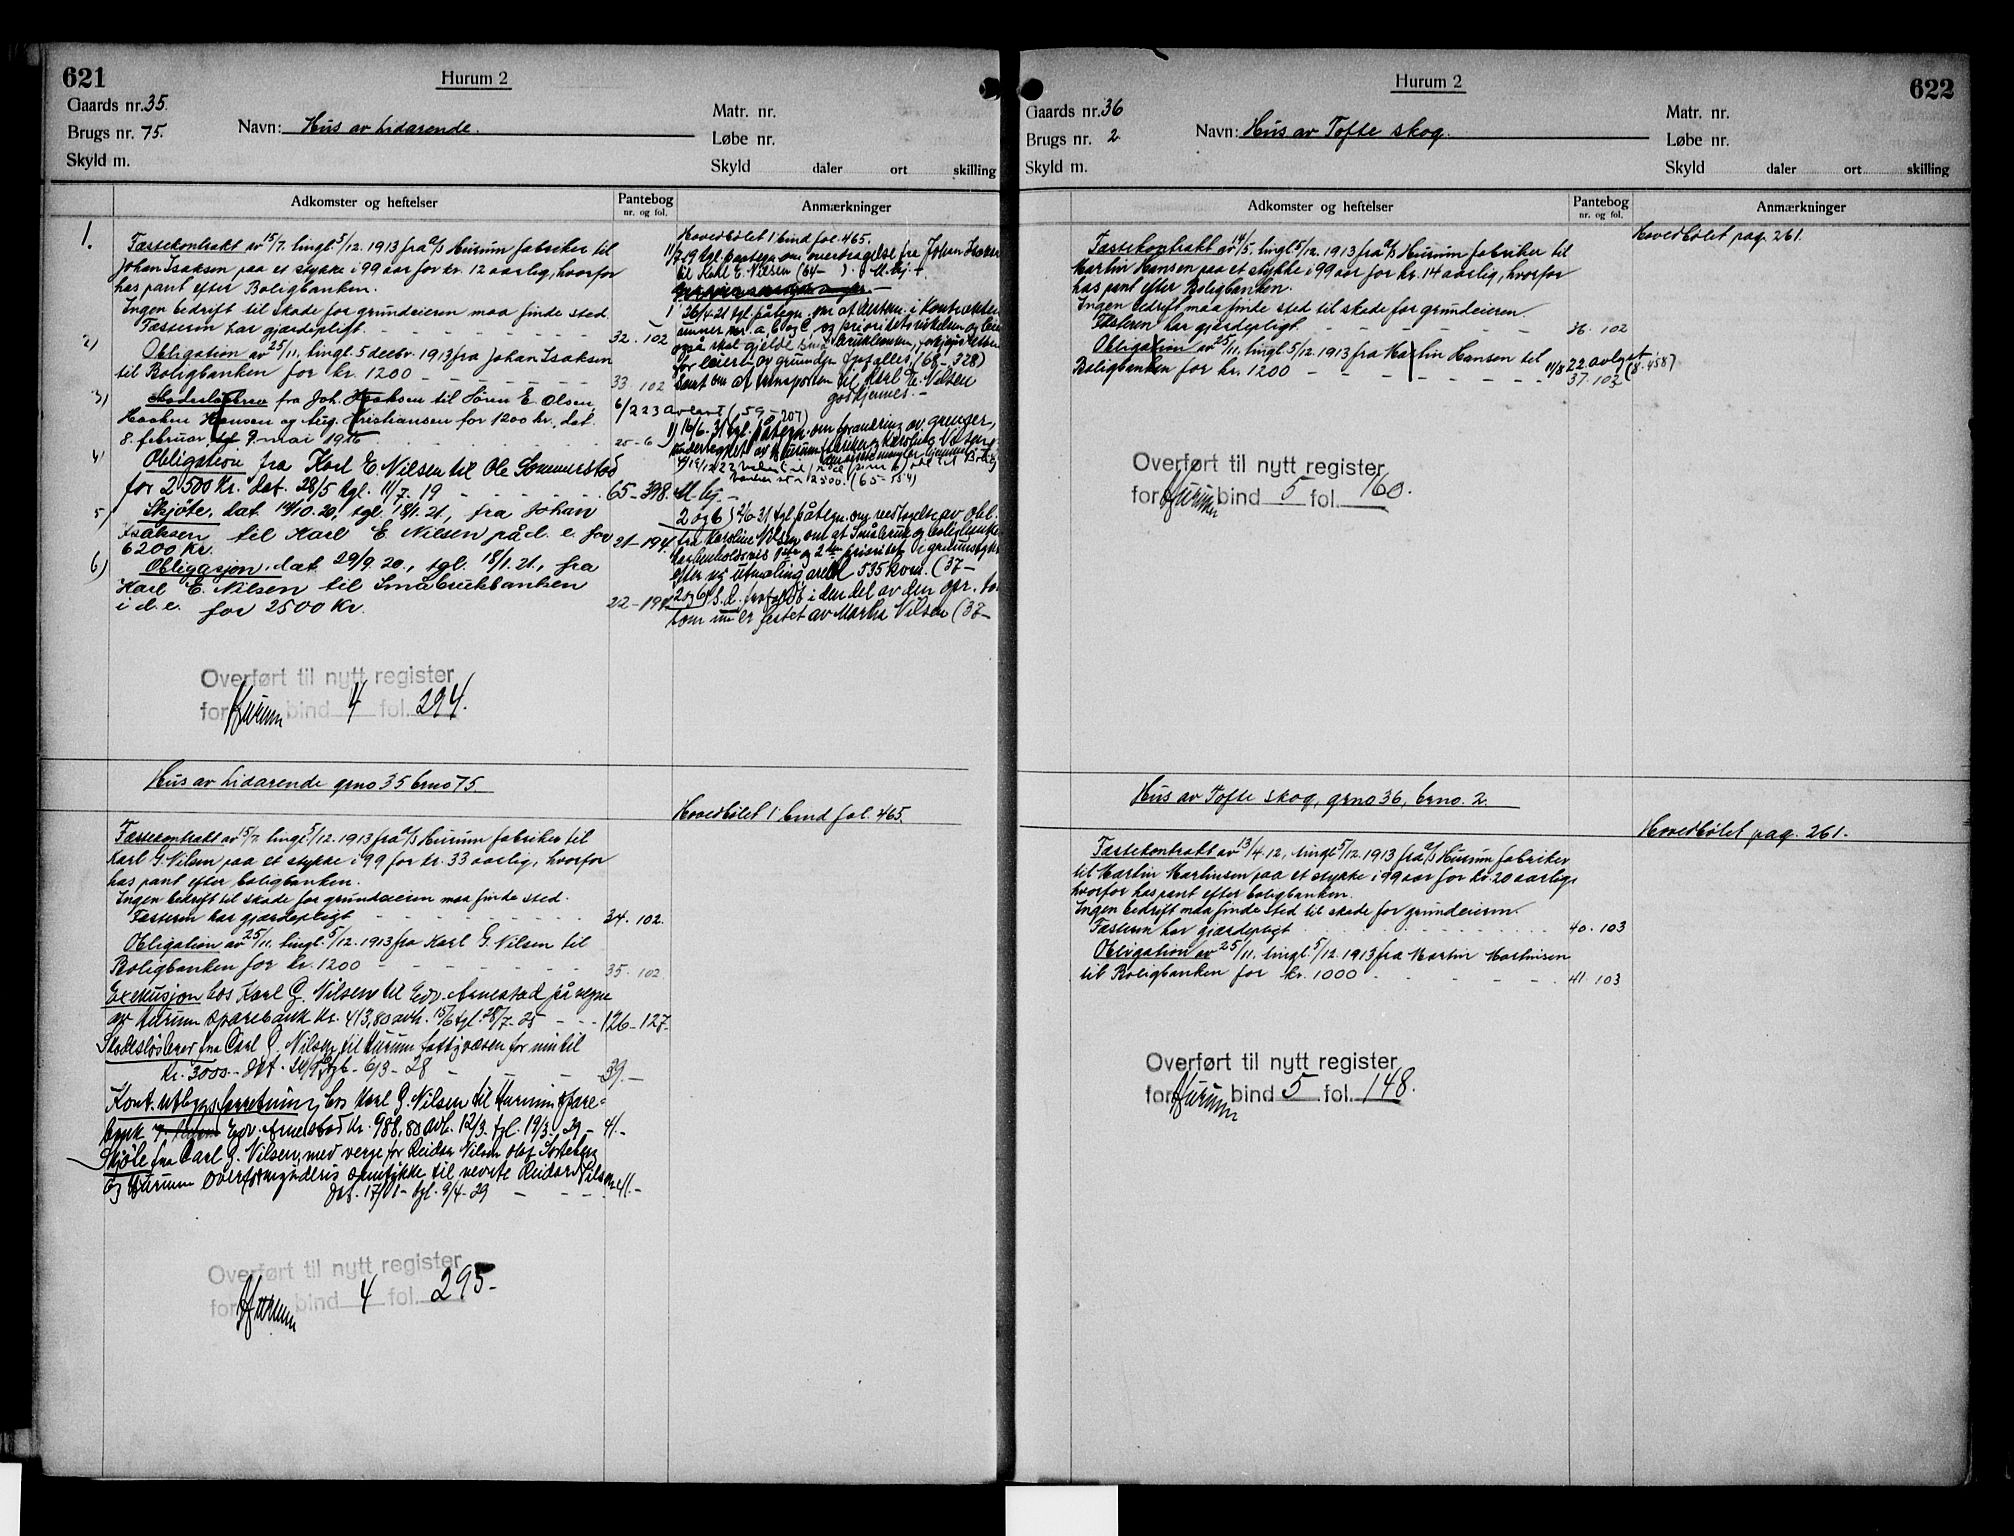 621
Hurum 2
Gaards nr. 35.
Brugs nr. 75.
Skyld m.
Navn: Hus av Lidarende.
Matr. nr.
Løbe nr.
Skyld daler ort skilling
Adkomster og heftelser
Pantebog
nr. og fol.
Anmærkninger
1.
Fæstekontrakt av 15/7. tingl. 5/12. 1913 fra A/S Hurum fabriker til
Johan Isaksen paa et stykke i 99 aar for kr. 12 aarlig, hvorfor
has pant efter Boligbanken.
Ingen bedrift til skade for grundeieren maa finde sted
Fæsteren har gjærdepligt 32. 102
2) Obligation av 25/11. tingl. 5 decbr. 1913 fra Johan Isaksen
til Boligbanken for kr. 1200 33. 102
3) Skadesløsbrev fra Joh. Isaksen til Sören E. Olsen,
Haaken Hansen og Aug. Kristiansen for 1200 kr., dat.
8 februar, 9 mai 1916 25-6
4) Obligation fra Karl E Nilsen til Ole
for 2500 Kr. dat. 28/5 tgl. 11/7-19 65-398.
5) Skjøte, dat. 14/10.20, tgl. 18/1.21, fra Johan
Isaksen til Karl E. Nilsen på d. e. for
6200 Kr. 21-194
6) Obligasjon, dat. 29/9.20., tgl. 18/1.21, fra
Karl E. Nilsen til Småbrukbanken
i d. e. for 2500 Kr. 22-194
Hovedbölet 1 bind fol. 465.
11/7-19 tgl. paategn. om overdragelse fra Johan
til Karl E. Nilsen (64- ).
26/4-21 tgl. påtegn. om at
for leiere av grunden (68-328)
samt om at transporten til Karl E. Nilsen
godkjennes.-
6/2 23 avlyst (59-207)
1) 16/6-31 tgl. påtegn. om forandring av grenser,
2 og 6) tgl påtegn. om
fra Karoline Nilsen om at Småbruk og boligbanken
efter ny utmåling areal 535 kvm. (37-
i den del av den opr. tomt
som nu er festet av Martha Nilsen (37-
Overført til nytt register
for Hurum bind 4 fol. 294.
Hus av Lidarende grno 35 brno 75.
Hovedbölet 1 bind fol. 465.
Fæstekontrakt av 15/7. tingl. 5/12. 1913 fra A/S Hurum fabriker til
Karl G. Nilsen paa et stykke i 99 for kr. 33 aarlig, hvorfor
has pant efter boligbanken.
Ingen bedrift til skade for grundeieren maa finde sted.
Fæsteren har gjærdepligt 34. 102.
Obligation av 25/11. tingl. 5/12. 1913 fra Karl G. Nilsen til
Boligbanken for kr. 1200 35. 102
Exekusjon hos Karl G. Nilsen til Edv. Arnestad på vegne
av Hurum sparebank kr. 413,80 avh. 15/6 tgl. 28/7-25 126-127.
Skadesløsbrev fra Carl G. Nilsen til Hurum fattigvæsen for inntil
kr. 3000.- dat. tgl. 6/3-28 39.-
Kont. utleggsforretning hos Karl G. Nilsen til Hurum spare-
bank v. Edv. Arnestad kr. 988,80 avh. 12/3. tgl. 19/3-29- 41.-
Skjøte fra Carl G. Nilsen, med verge for Reidar Nilsen Olaf
og Hurum overformynderis samtykke til nevnte Reidar Nilsen 41.-
dat. 17/01- tgl. 9/4-29
Overført til nytt register
for Hurum bind 4 fol. 295-
622
Hurum 2
Gaards nr. 36
Brugs nr. 2
Skyld m.
Navn: Hus av Tofte skog.
Matr. nr.
Løbe nr.
Skyld daler ort skilling
Adkomster og heftelser
Pantebog
nr. og fol.
Anmærkninger
Hovedbölet pag. 261.
Fæstekontrakt av 14/5. tingl. 5/12. 1913 fra A/S Hurum fabriker til
Martin Hansen paa et stykke i 99 aar for kr. 14 aarlig, hvorfor
has pant efter Boligbanken.
Ingen bedrift maa finde sted til skade for grundeieren
Fæsteren har gjærdepligt 36. 102
Obligation av 25/11. tingl. 5/12. 1913 fra Martin Hansen til
Boligbanken for kr. 1200 37. 102
11/8 22 avlyst (8.458)
Overført til nytt register
for Hurum bind 5 fol. 160.
Hus av Tofte skog, grno 36, brno. 2
Hovedbölet pag. 261.
Fæstekontrakt av 13/4. 12, tingl. 5/12. 1913 fra A/S Hurum fabriker
til Martin Martinsen paa et stykke i 99 aar for kr. 20 aarlig,
hvorfor has pant efter boligbanken.
Ingen bedrift maa finde sted til skade for grundeieren.
Fæsteren har gjærdepligt 40. 103
Obligation av 25/11. tingl. 5/12. 1913 fra Martin Martinsen
til Boligbanken for kr. 1000 41. 103
Overført til nytt register
for Hurum bind 5 fol. 148.